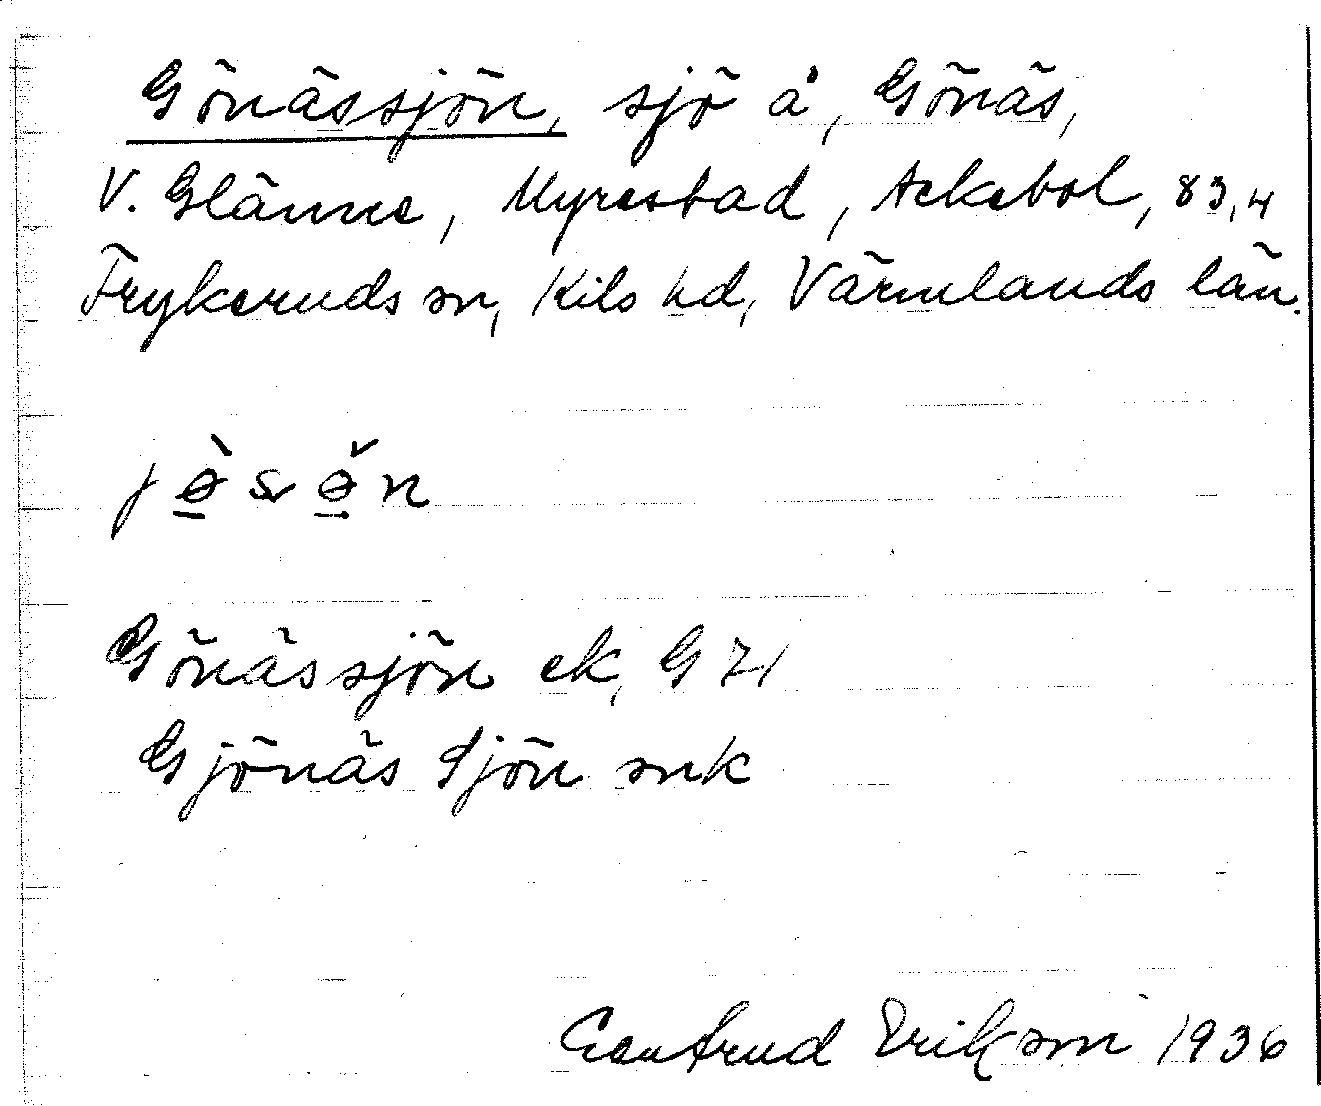 Gönässjön, sjö å, Gönäs,
V. Glänne, Myrestad, Ackebol, 83,4
Frykeruds sn, Kils hd, Värmlands län.
Gönässjön ek, G 71
Gjönäs Sjön snk
Gertrud Erikson 1936